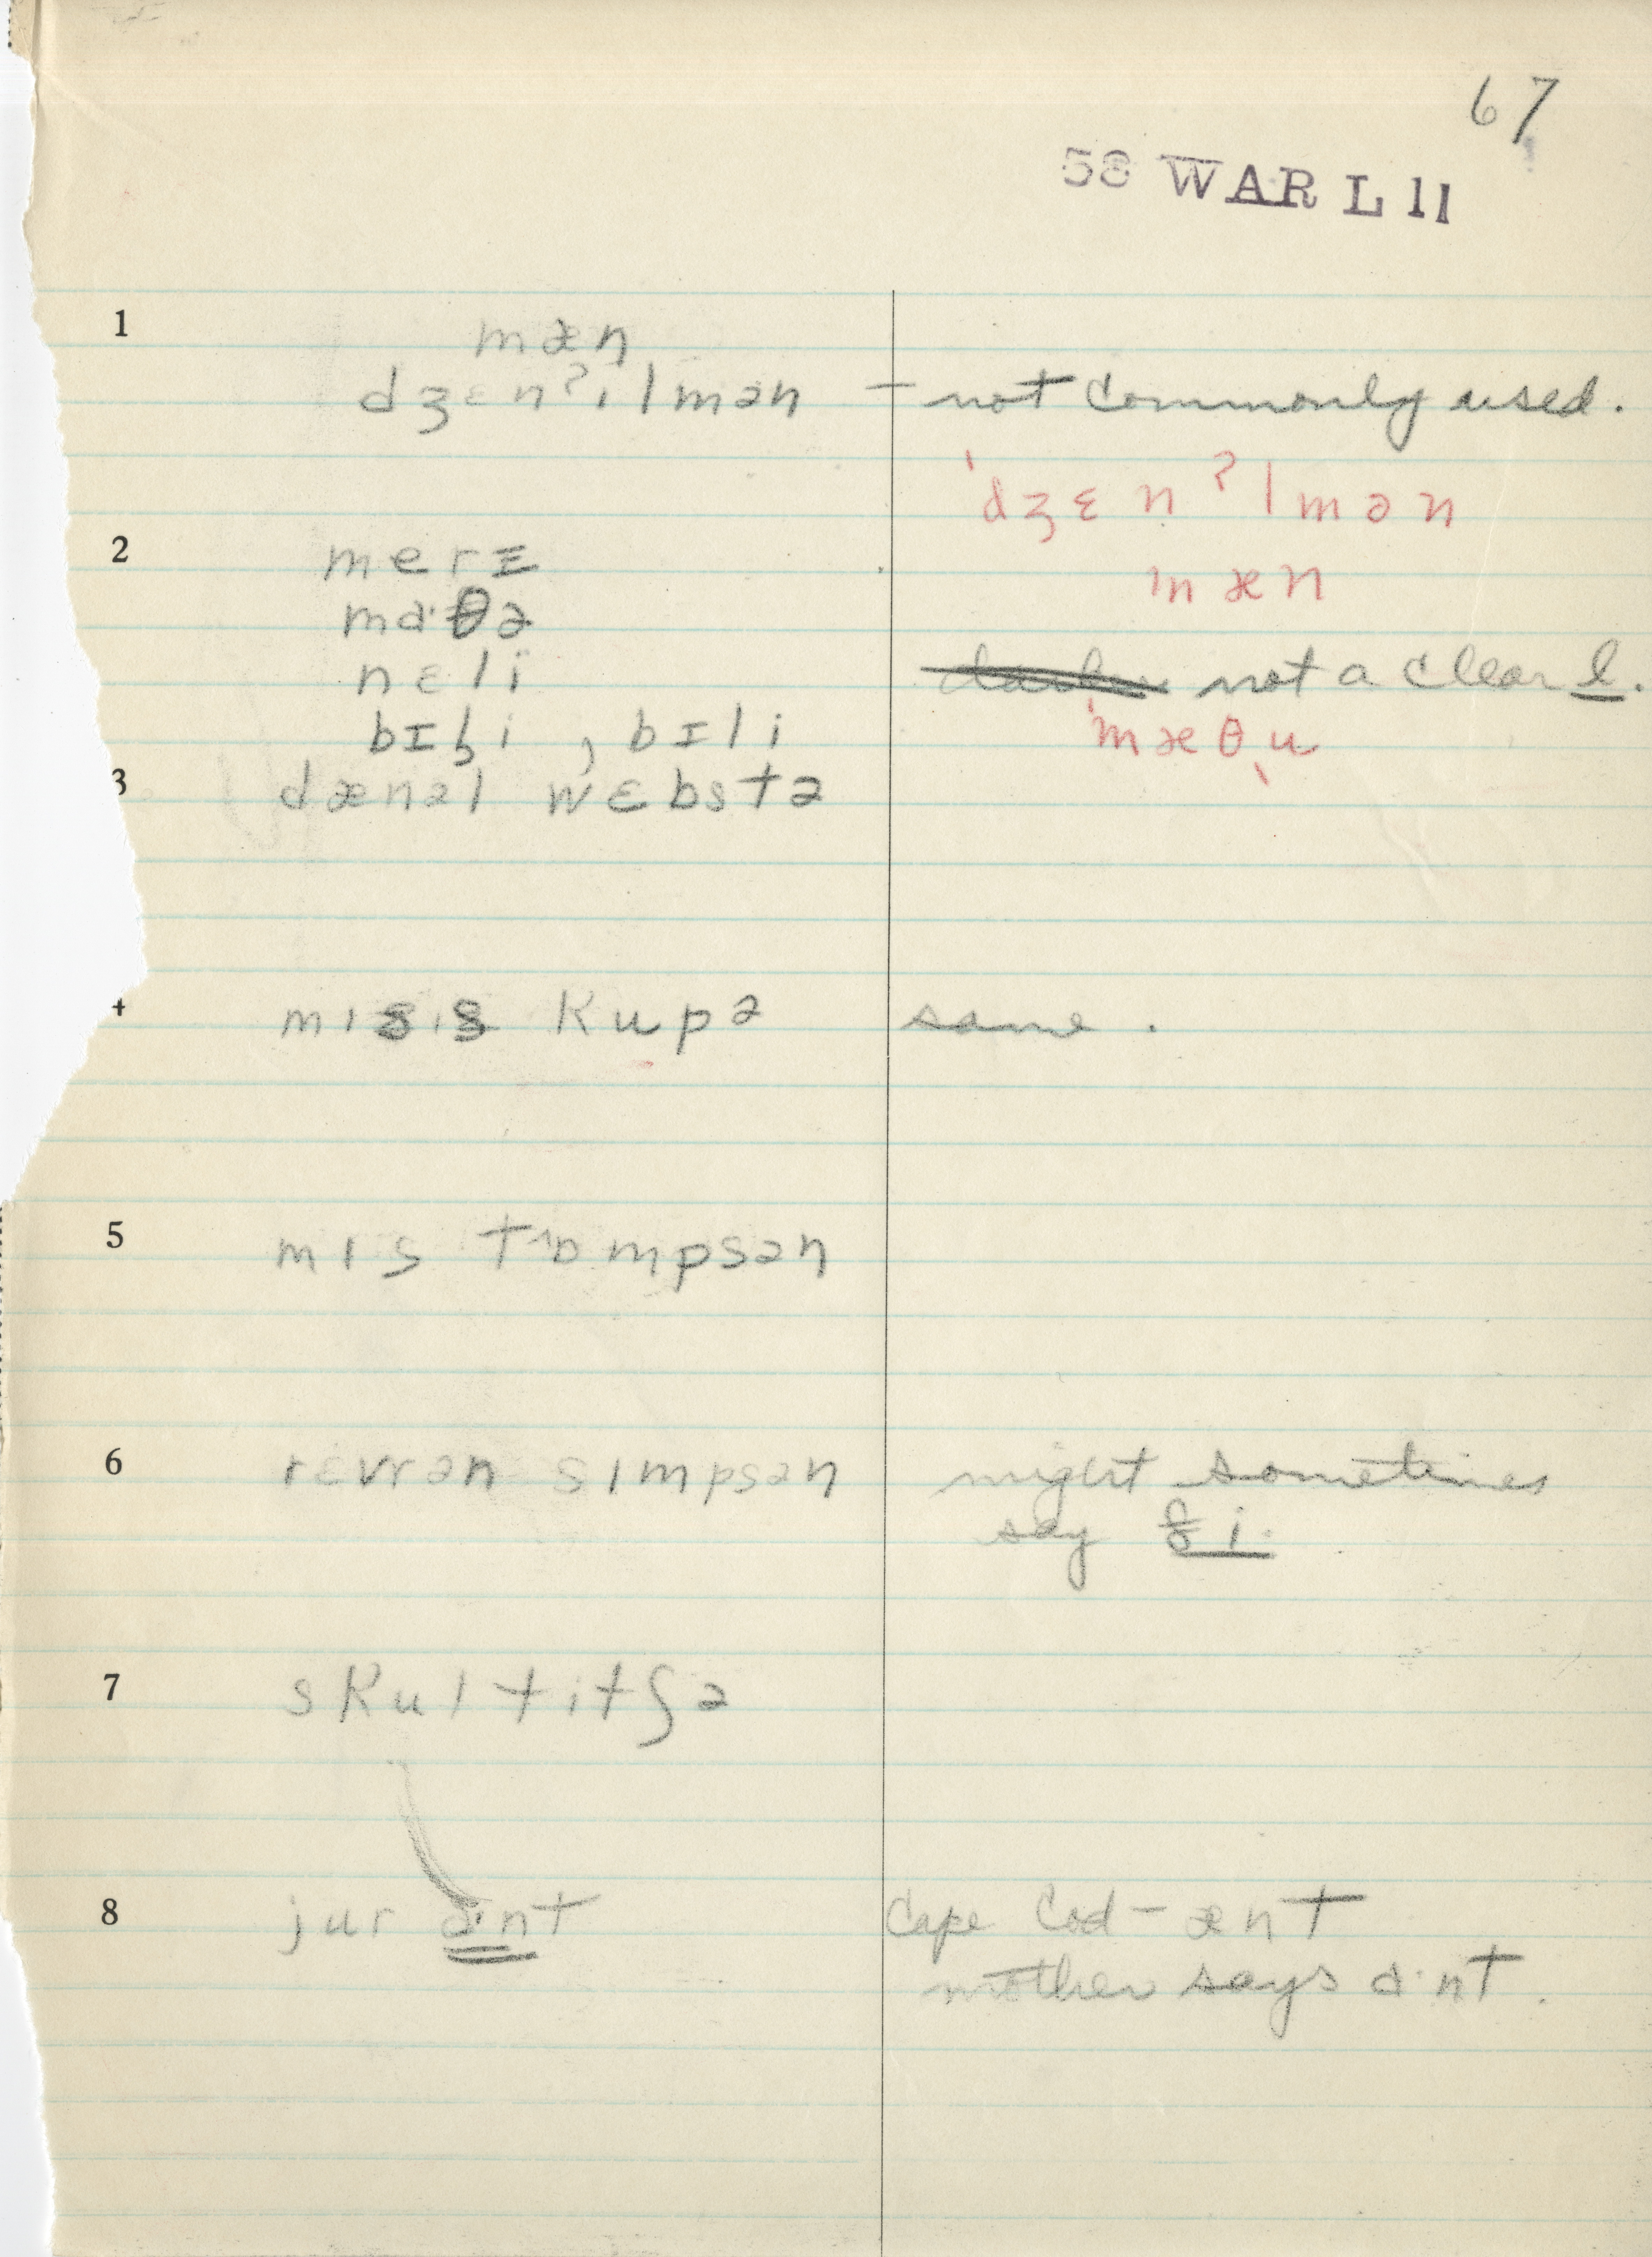 67
58 WAR L 11
1
mæn
dʒɛnʔılmən – not commonly used.
'dʒɛnʔlmən
2
merɪ
mæn
ma·θə
nɛli
not a clear l.
bɪɫi , bɪli
'mæθˌu
3
dænəl wɛbstə
4
mısıs kupə
same.
5
mıs tɒmpsən
6
rɛvrən sımpsən
might sometimes
say
7
skul titʃə
8
jur a·nt
Cape Cod – ænt
mother says a·nt.